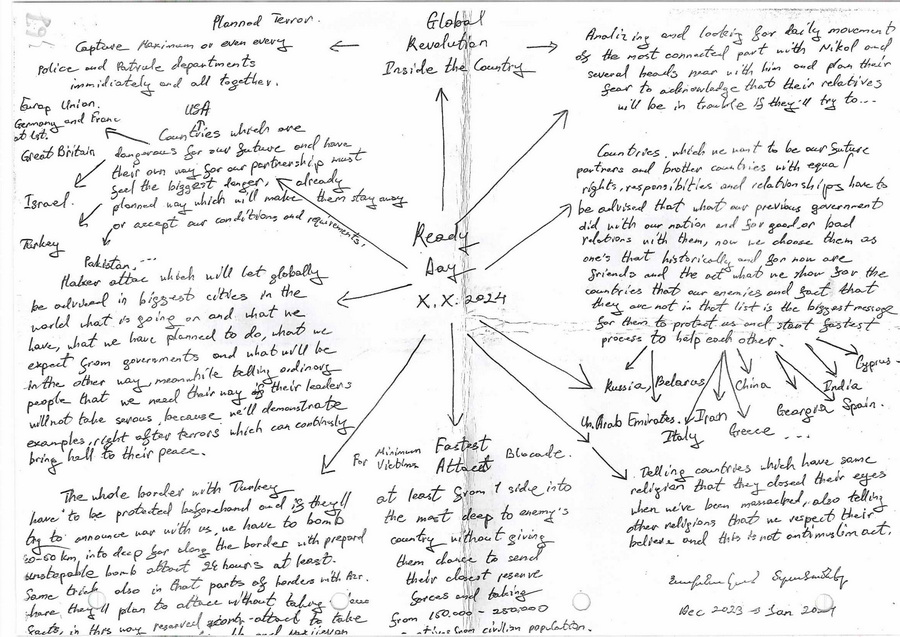 Planned Terror.
Capture Maximum or even every
Police and Patrule departments
immidiately and all together.
Global
Revolution
Inside the Country
Analizing and looking for daily movement
of the most connected part with Nikol and
several heads near with him and plan their
fear to acknowledge that their relatives
will be in trouble if they'll try to...
Europ Union.
Germany and Franc
at 1st.
Great Britain
Israel.
Turkey
Pakistan,...
USA
Countries which are
dangerous for our future and have
their own way for our partnership must
feel the biggest danger, already
planned way which will make them stay away
or accept our conditions and requirements.
Countries, which we want to be our future
partners and brother countries with equal
rights, responsibities and relationships have to
be advised that what our previous government
did with our nation and for good or bad
relations with them, now we choose them as
one's that historically and for now are
friends and the act what we show for the
countries that our enemies and fact that
they are not in that list is the biggest message
for them to protect us and start fastest
process to help each other.
Ready
Day
X.X. 2024
Haker attac which will let globally
be advised in biggest cities in the
world what is going on and what we
have, what we have planned to do, what we
expect from governments and what will be
in the other way, meanwhile telling ordinary
people that we need their way if their leaders
will not take serous, because we'll demonstrate
examples, right after terrors which can continusly
bring hell to their peace.
Russia, Belarus, China India Cyprus
Un. Arab Emirates. Iran Georgia Spain.
Italy Greece ...
The whole border with Turkey
have to be protected beforehand and if they'll
try to announce war with us, we have to bomb
km, into deep far along the border with prepard
unstopable bomb attact 24 hours at least.
Same trick also in that parts of borders with Azr.
they'll plan to attacc without taking
facts, in this way reserved contr-attact to take
For Minimum Victims Fastest Attact Blocade.
at least from 1 side into
the most deep to enemy's
country without giving
them chance to send
their closest reserve
forces and taking
from 150.000 - 250.000
from civilian population.
Telling countries which have same
religian that they closed their eyes
when we've been massacred, also telling
other religions that we respect their
believe and this is not antimuslim act.
Dec 2023 Jan 2024